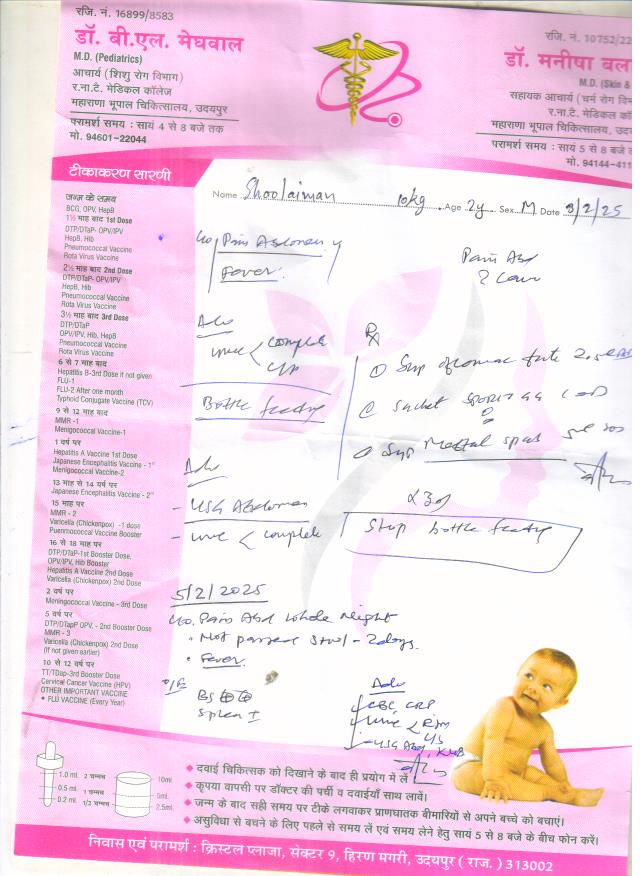 रजि. नं. 16899/8583
डॉ. बी.एल. मेघवाल
M.D. (Pediatrics)
आचार्य (शिशु रोग विभाग)
र.ना.टै. मेडिकल कॉलेज
महाराणा भूपाल चिकित्सालय, उदयपुर
परामर्श समय : सायं 4 से 8 बजे तक
मो. 94601-22044
रजि. नं. 10752/22
डॉ. मनीषा
M.D. (Skin &
सहायक आचार्य (चर्म रोग
र.ना.टै. मेडिकल
महाराणा भूपाल चिकित्सालय,
परामर्श समय : सायं 5 से 8
मो. 94144-411
टीकाकरण सारणी
जन्म के समय
BCG, OPV, HepB
1½ माह बाद 1st Dose
DTP/DTaP- OPV/IPV
HepB, Hib
Pneumococcal Vaccine
Rota Virus Vaccine
2½ माह बाद 2nd Dose
DTP/DTaP- OPV/IPV
HepB, Hib
Pneumococcal Vaccine
Rota Virus Vaccine
3½ माह बाद 3rd Dose
DTP/DTaP
OPV/IPV, Hib, HepB
Pneumococcal Vaccine
Rota Virus Vaccine
6 से 7 माह बाद
Hepatitis B-3rd Dose if not given
FLU-1
FLU-2 After one month
Typhoid Conjugate Vaccine (TCV)
9 से 12 माह बाद
MMR -1
Menigococcal Vaccine-1
1 वर्ष पर
Hepatitis A Vaccine 1st Dose
Japanese Encephalitis Vaccine - 1"
Menigococcal Vaccine-2
13 माह से 14 वर्ष पर
Japanese Encephalitis Vaccine - 2"
15 माह पर
MMR - 2
Varicella (Chickenpox) -1 dose
Puenmococcal Vaccine Booster
16 से 18 माह पर
DTP/DTaP-1st Booster Dose,
OPV/IPV, Hib Booster
Hepatitis A Vaccine 2nd Dose
Varicella (Chickenpox) 2nd Dose
2 वर्ष पर
Meningococcal Vaccine - 3rd Dose
5 वर्ष पर
DTP/DTapP OPV, - 2nd Booster Dose
MMR - 3
Varicella (Chickenpox) 2nd Dose
(If not given earlier)
10 से 12 वर्ष पर
TT/TDap-3rd Booster Dose
Cervical Cancer Vaccine (HPV)
OTHER IMPORTANT VACCINE
FLU VACCINE (Every Year)
Name Shoolaiman 10kg Age 2y Sex M Date 3/2/25
Pain Abdomen
Fever
Pain Abd
Adv
complete
Bottle feeding
Rx
① Syp
Sachet
Syp spas
Adv
- USG Abdomen
- complete
x 3d
Stop bottle feeding
5/2/2025
c/o. Pain Abd whole night
• Not passed stool - 2days.
• Fever
O/E
Adv
CBC, CRP
- USG Abd, KUB
1.0 ml. 2 चम्मच 10ml
0.5 ml. 1 चम्मच 5ml.
0.2 ml. 1/2 चम्मच 2.5ml.
◆ दवाई चिकित्सक को दिखाने के बाद ही प्रयोग में लें
◆ कृपया वापसी पर डॉक्टर की पर्ची व दवाईयाँ साथ लावें।
◆ जन्म के बाद सही समय पर टीके लगवाकर प्राणघातक बीमारियों से अपने बच्चे को बचाएं।
◆ असुविधा से बचने के लिए पहले से समय लें एवं समय लेने हेतु सायं 5 से 8 बजे के बीच फोन करें।
निवास एवं परामर्श : क्रिस्टल प्लाजा, सेक्टर 9, हिरण मगरी, उदयपुर ( राज. ) 313002